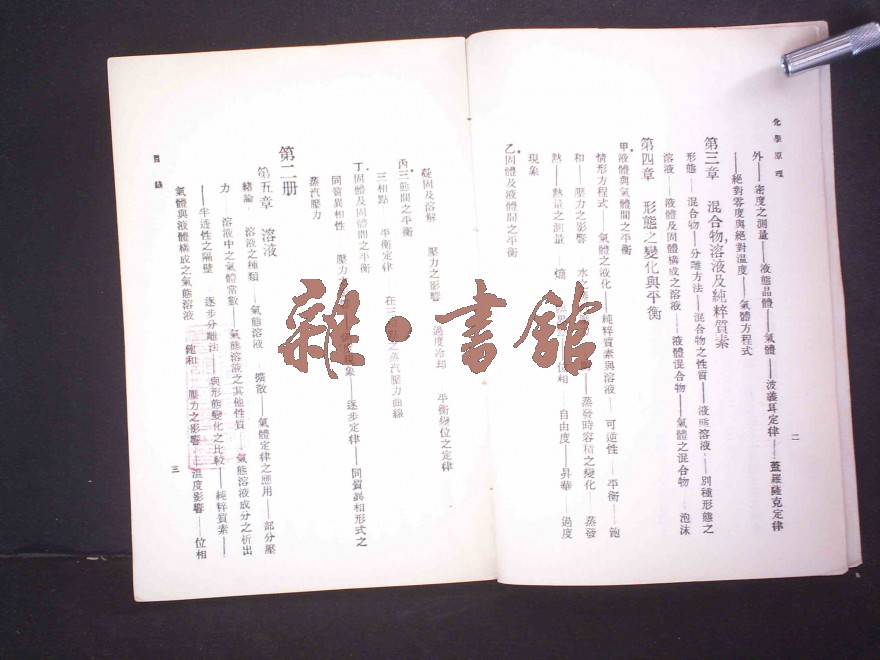 化學原理
二
外——密度之測量——液態晶體——氣體——波義耳定律——蓋羅薩克定律
——絕對零度與絕對溫度——氣體方程式
第三章 混合物,溶液及純粹質素
形態——混合物——分離方法——混合物之性質——液態溶液——別種形態之
溶液——液體及固體構成之溶液——液體混合物——氣體之混合物——泡沫
第四章 形態之變化與平衡
甲.液體與氣體間之平衡
情形方程式——氣體之液化——純粹質素與溶液——可逆性——平衡——飽
和——壓力之影響——水之蒸——蒸發時容積之變化——蒸發
熱——熱量之測量——位相——自由度——昇華——過度
現象
乙.固體及液體間之平衡
凝固及溶解——壓力之影響——過度冷却——平衡變位之定律
丙.三態間之平衡
三相點——平衡定律——在三相點之蒸汽壓力曲線
丁.固體及固體間之平衡
同質異相性——壓力——現象——逐步定律——同質異相形式之
蒸汽壓力
第二册
第五章 溶液
緒論——溶液之種類——氣態溶液——擴散——氣體定律之應用——部分壓
力——溶液中之氣體常數——氣態溶液之其他性質——氣態溶液成分之析出
——半透性之隔壁——逐步分離法——與形態變化之比較——純粹質素——
氣體與液體構成之氣態溶液——飽和——壓力之影響——溫度影響——位相
目錄
三
雜·書館